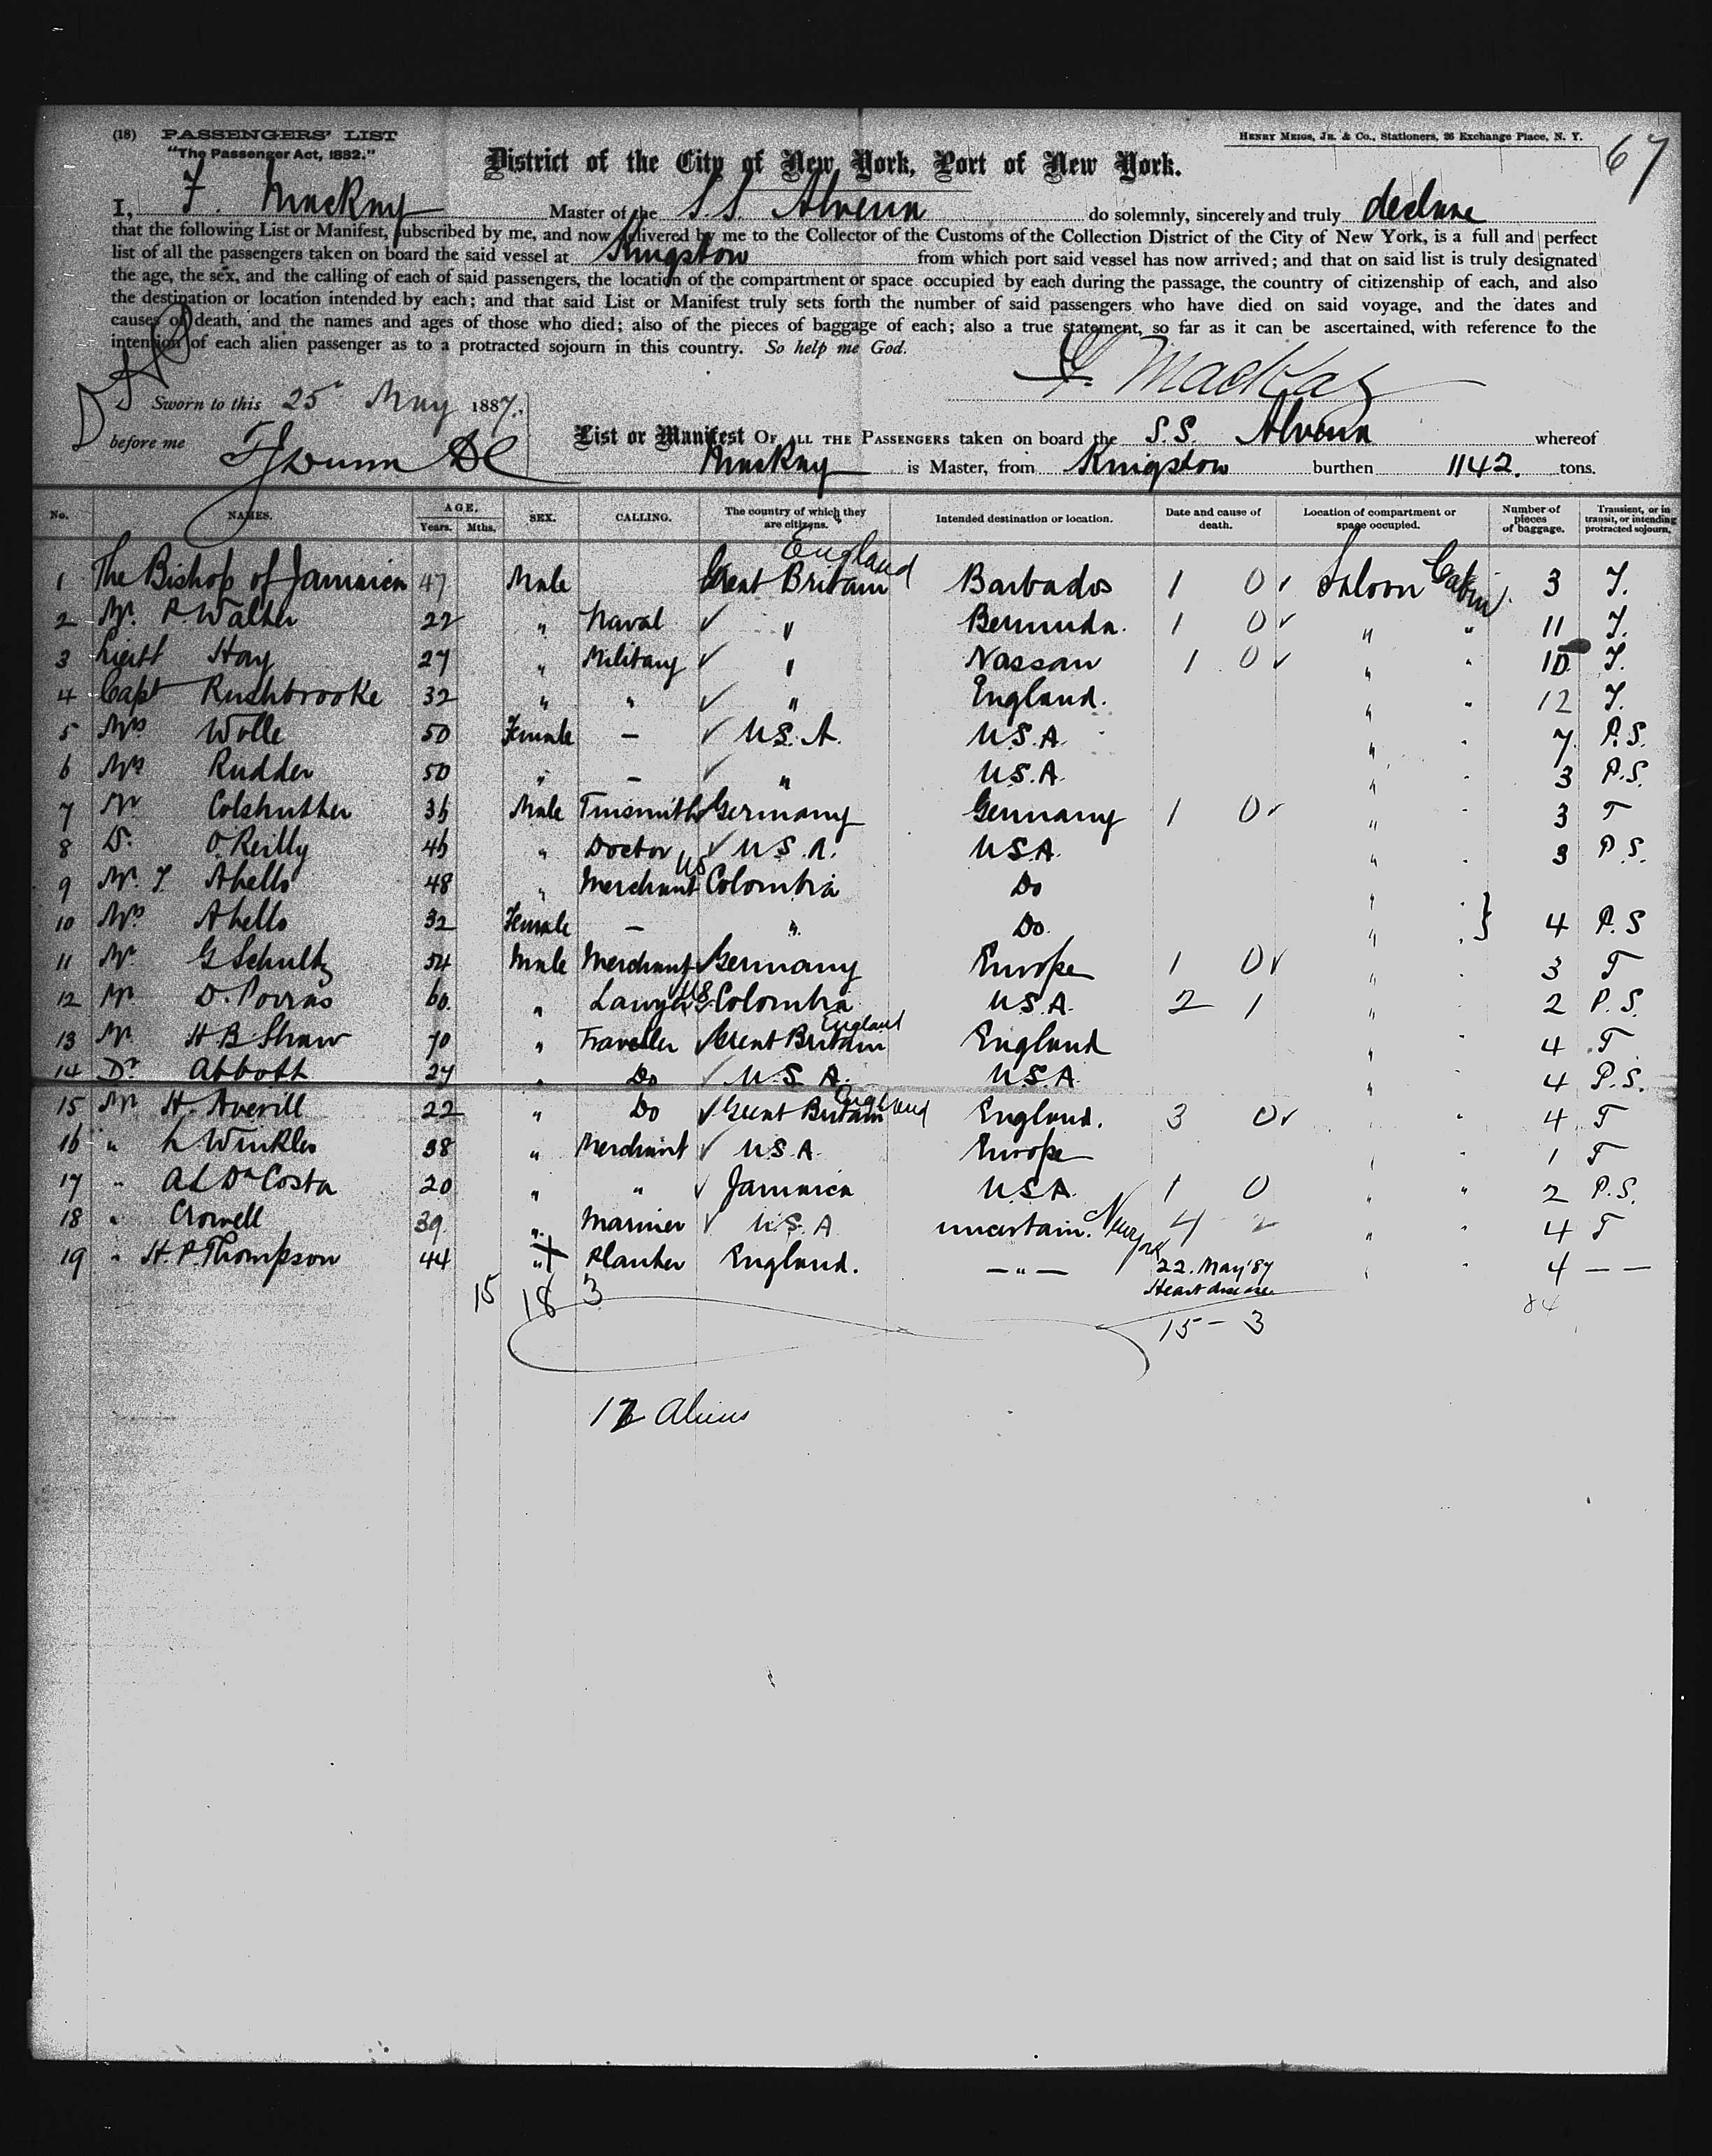 (18) PASSENGERS' LIST
"The Passenger Act, 1882."
HENRY MEIGS, JR. & CO., Stationers, 26 Exchange Place, N. Y.
67
District of the City of New York, Port of New York.
I, F. MacKay Master of the S.S. Alvena do solemnly, sincerely and truly declare
that the following List or Manifest, subscribed by me, and now delivered by me to the Collector of the Customs of the Collection District of the City of New York, is a full and perfect
list of all the passengers taken on board the said vessel at Kingston from which port said vessel has now arrived; and that on said list is truly designated
the age, the sex, and the calling of each of said passengers, the location of the compartment or space occupied by each during the passage, the country of citizenship of each, and also
the destination or location intended by each; and that said List or Manifest truly sets forth the number of said passengers who have died on said voyage, and the dates and
causes of death, and the names and ages of those who died; also of the pieces of baggage of each; also a true statement, so far as it can be ascertained, with reference to the
intention of each alien passenger as to a protracted sojourn in this country. So help me God.
F. MacKay
Sworn to this 25 May 1887.
before me
List or Manifest OF ALL THE PASSENGERS taken on board the S.S. Alvena whereof
MacKay is Master, from Kingston burthen 1142. tons.
No. NAMES. AGE. Years. Mths. SEX. CALLING. The country of which they are citizens. Intended destination or location. Date and cause of death. Location of compartment or space occupied. Number of pieces of baggage. Transient, or in transit, or intending protracted sojourn.
1 The Bishop of Jamaica 47 Male Great Britain England Barbados 1 0 ✓ Saloon Cabin 3 T.
2 Mr. P. Walter 22 " Naval ✓ " Bermuda. 1 0 ✓ " " 11 T.
3 Lieut Hay 27 " Military ✓ " Nassau 1 0 ✓ " " 10 T.
4 Capt Rushbrooke 32 " " ✓ " England. " " 12 T.
5 Mrs Wolle 50 Female — ✓ U.S.A. U.S.A. " " 7 P.S.
6 Mrs Rudder 50 " — ✓ " U.S.A. " " 3 P.S.
7 Mr Colshutter 36 Male Tinsmith ✓ Germany Germany 1 0 ✓ " " 3 T
8 Dr. O'Reilly 46 " Doctor ✓ U.S.A. U.S.A. " " 3 P.S.
9 Mr. J Abello 48 " Merchant US Colombia Do " "
10 Mrs Abello 32 Female — " Do. " " } 4 P.S
11 Mr G Schultz 54 Male Merchant ✓ Germany Europe 1 0 ✓ " " 3 T
12 Mr D. Porras 60. " Lawyer U.S. Colombia U.S.A. 2 1 " 2 P.S.
13 Mr H B Shaw 70 " Traveller ✓ Great Britain England England " 4 T
14 Dr Abbott 27 " Do ✓ U.S.A. U.S.A " 4 P.S.
15 Mr H. Averill 22 " Do ✓ Great Britain England England. 3 0 ✓ " " 4 T
16 " L Winkler 38 " Merchant ✓ U.S.A. Europe " " 1 T
17 " A L Da Costa 20 " " ✓ Jamaica U.S.A. 1 0 " " 2 P.S.
18 " Crowell 39. " Mariner ✓ U.S.A uncertain. New York 4 2 " " 4 T
19 " H. P. Thompson 44 " + Planter England. — " — 22. May '87 Heart disease " " 4 — —
15 18 3
15 – 3
84
Aliens